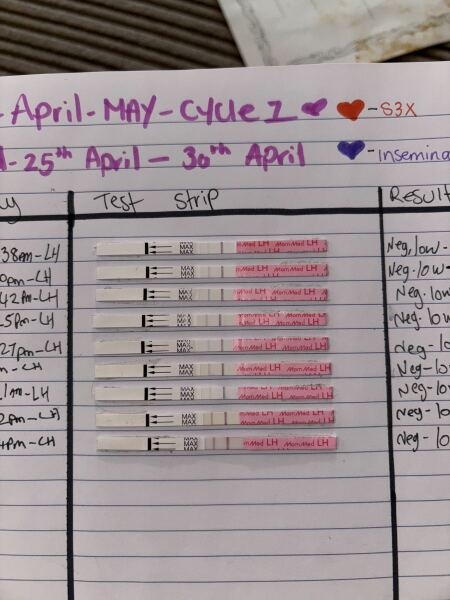 - April - MAY - Cycle 1 - S3X
- 25th April - 30th April - Insemina
Test Strip Result
:38am - LH MAX MAX MomMed LH MomMed LH Neg, low -
0pm - LH MAX MAX MomMed LH MomMed LH Neg - low -
:42pm - LH MAX MAX MomMed LH Neg - low
5pm - LH MAX MAX MomMed LH Neg - low
:27pm - LH MAX MAX MomMed LH Neg - lo
m - LH MAX MAX MomMed LH MomMed LH Neg - low
1m - LH MAX MAX MomMed LH Neg - low
2pm - LH MAX MAX MomMed LH MomMed LH Neg - low
4pm - LH MAX MAX MomMed LH MomMed LH Neg - lo